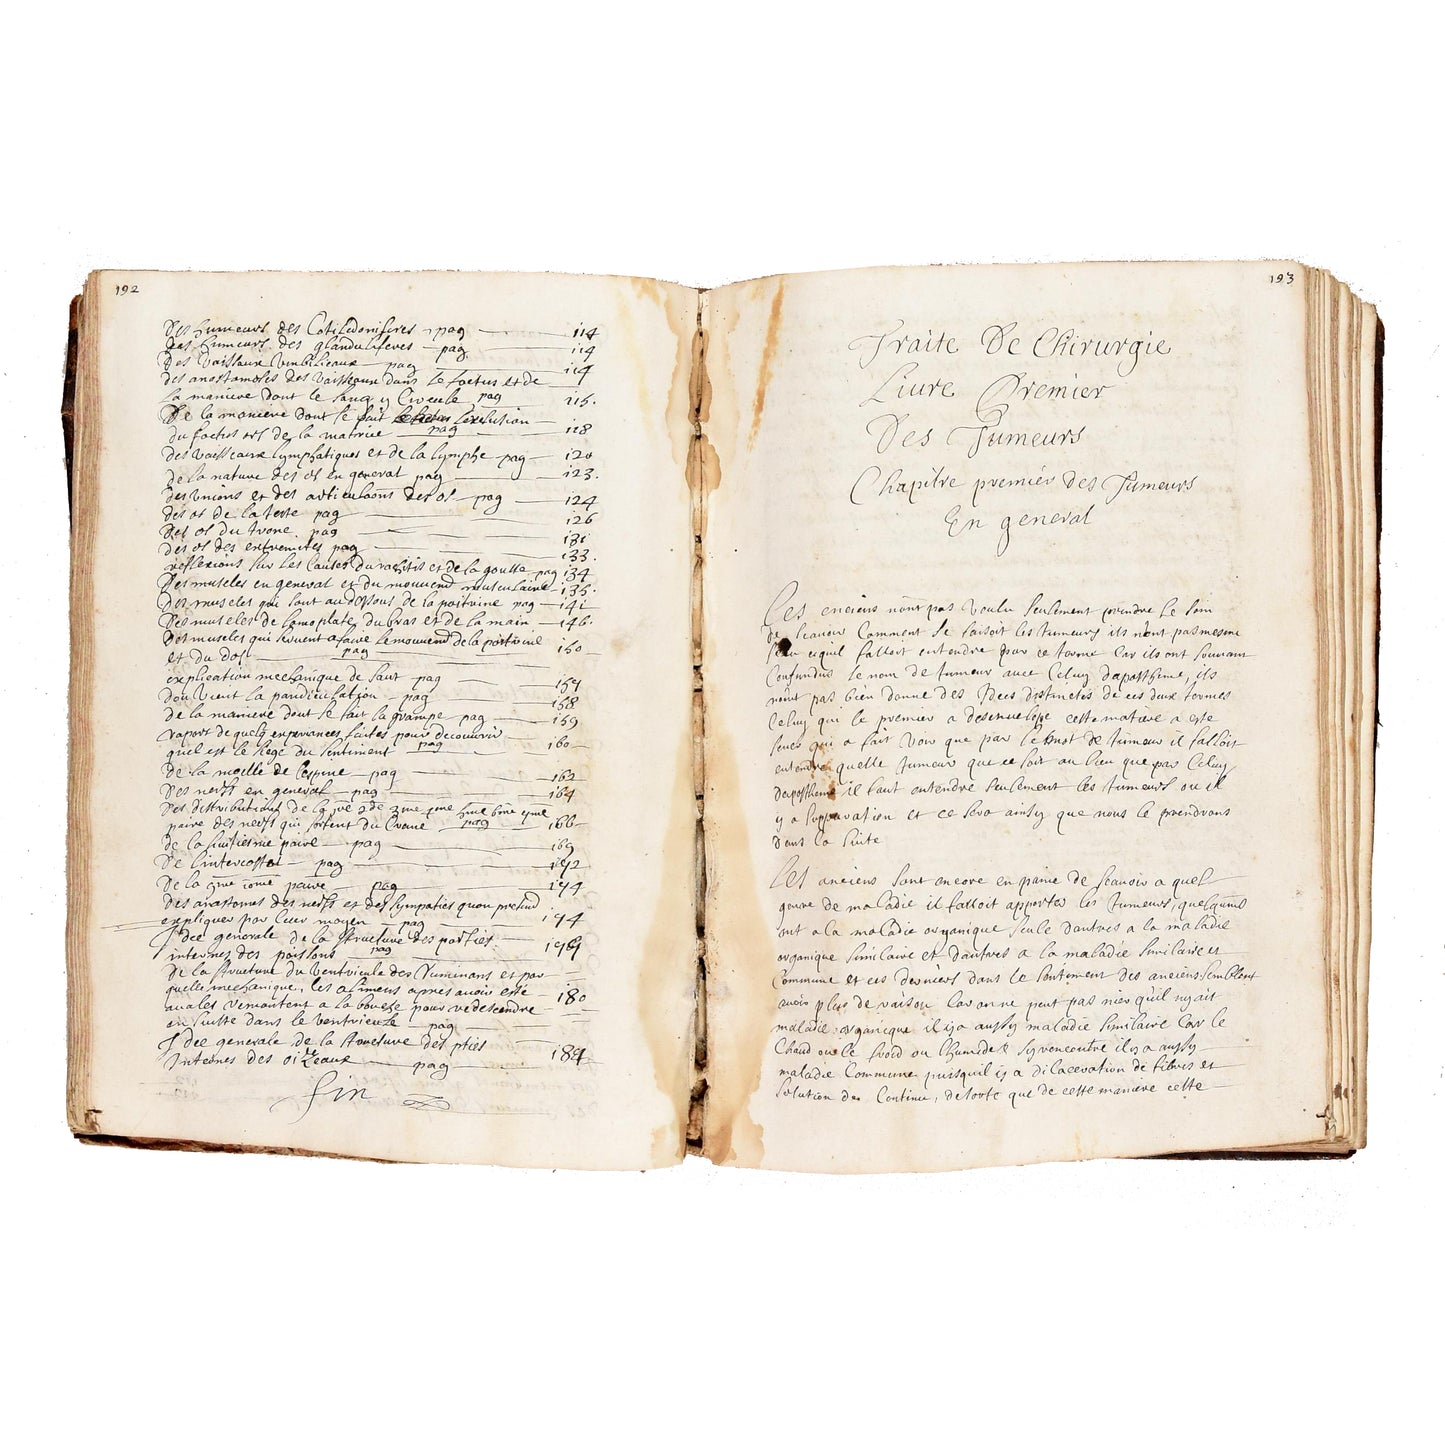 192
Des humeurs des Cotiledoniferes pag 114
Des humeurs des glanduliferes pag 114
Des Vaisseaux Vmbilicaux pag 114
des anostomoses des Vaisseaux dans le foetus et de
la maniere dont le sang y Circule pag 115.
De la maniere dont se fait l'exclusion
du foetus ors de la matrice pag 118
des vaisseaux lymphatiques et de la lymphe pag 120
de la nature des os en general pag 123.
des Vnions et des articulaons des os pag 124
des os de la teste pag 126
des os du trone pag 131
des os des extremites pag 133.
reflexions sur les Causes du rachitis et de la goutte pag 134
des muscles en general et du mouuemt musculaire 135.
des muscles qui sont au dessous de la poitrine pag 141
des muscles de lomoplate du bras et de la main 146.
des muscles qui seruent a faire le mouuemt de la poitrine
et du dos pag 150
explication mechanique de saut pag 157
dou Vient la pandiculation pag 158
de la maniere dont se fait la crampe pag 159
raport de quelq experiances faites pour decouurir
quel est le siege du sentiment pag 160
de la moelle de lespine pag 162
des nerfs en general pag 164
des distributions de la pre 2de 3me 4me 5me 6me 7me
paire des nerfs qui sortent du Crane pag 166
de la huitiesme paire pag 169
de lintercostal pag 172
de la 9me 10me paire pag 174
des anastomos des nerfs et des sympaties quon pretend
expliquer par leur moyen pag 174
Idee generale de la structure des parties
internes des poissons pag 179
de la structure du Ventricule des Ruminans et par
quelle mechanique, les alimens apres auoir esté
auales remontent a la bouche pour redescendre
en suitte dans le Ventricule pag 180
Idee generale de la structure des pties
Internes des oizeaux pag 184
fin
193
Traite De Chirurgie
Liure Premier
Des Tumeurs
Chapitre premier des Tumeurs
En general
Les enciens n'ont pas Voulu seulement prendre le soin
de scauoir Comment se faisoit les tumeurs ils n'ont pas mesme
sceu cequil falloit entendre par ce terme Car ils ont souuent
Confundus le nom de tumeur auec Celuy dapostheme, ils
n'ont pas bien donne des Idees distinctes de ces deux termes
Celuy qui le premier a desenuelope cette matiere a este
qui a fait Voir que par le mot de tumeur il falloit
entendre quelle tumeur que ce soit au lieu que par Celuy
dapostheme il faut entendre seulement les tumeurs ou il
y a suppuration et ce sera ainsy que nous le prendrons
dans la suite
Les anciens sont encore en paine de scauoir a quel
genre de maladie il falloit apporter les tumeurs, quelquuns
ont a la maladie organique seule d'autres a la maladie
organique similaire et d'autres a la maladie similaire et
Commune et ces derniers dans le sentiment des anciens semblent
auoir plus de raison Car on ne peut pas nier qu'il ny ait
maladie organique il y a aussy maladie similaire Car le
Chaud ou le froid ou lhumide sy rencontre il y a aussy
maladie Commune puisquil y a dilaceration de fibres et
solution de Continu, desorte que de cette maniere cette